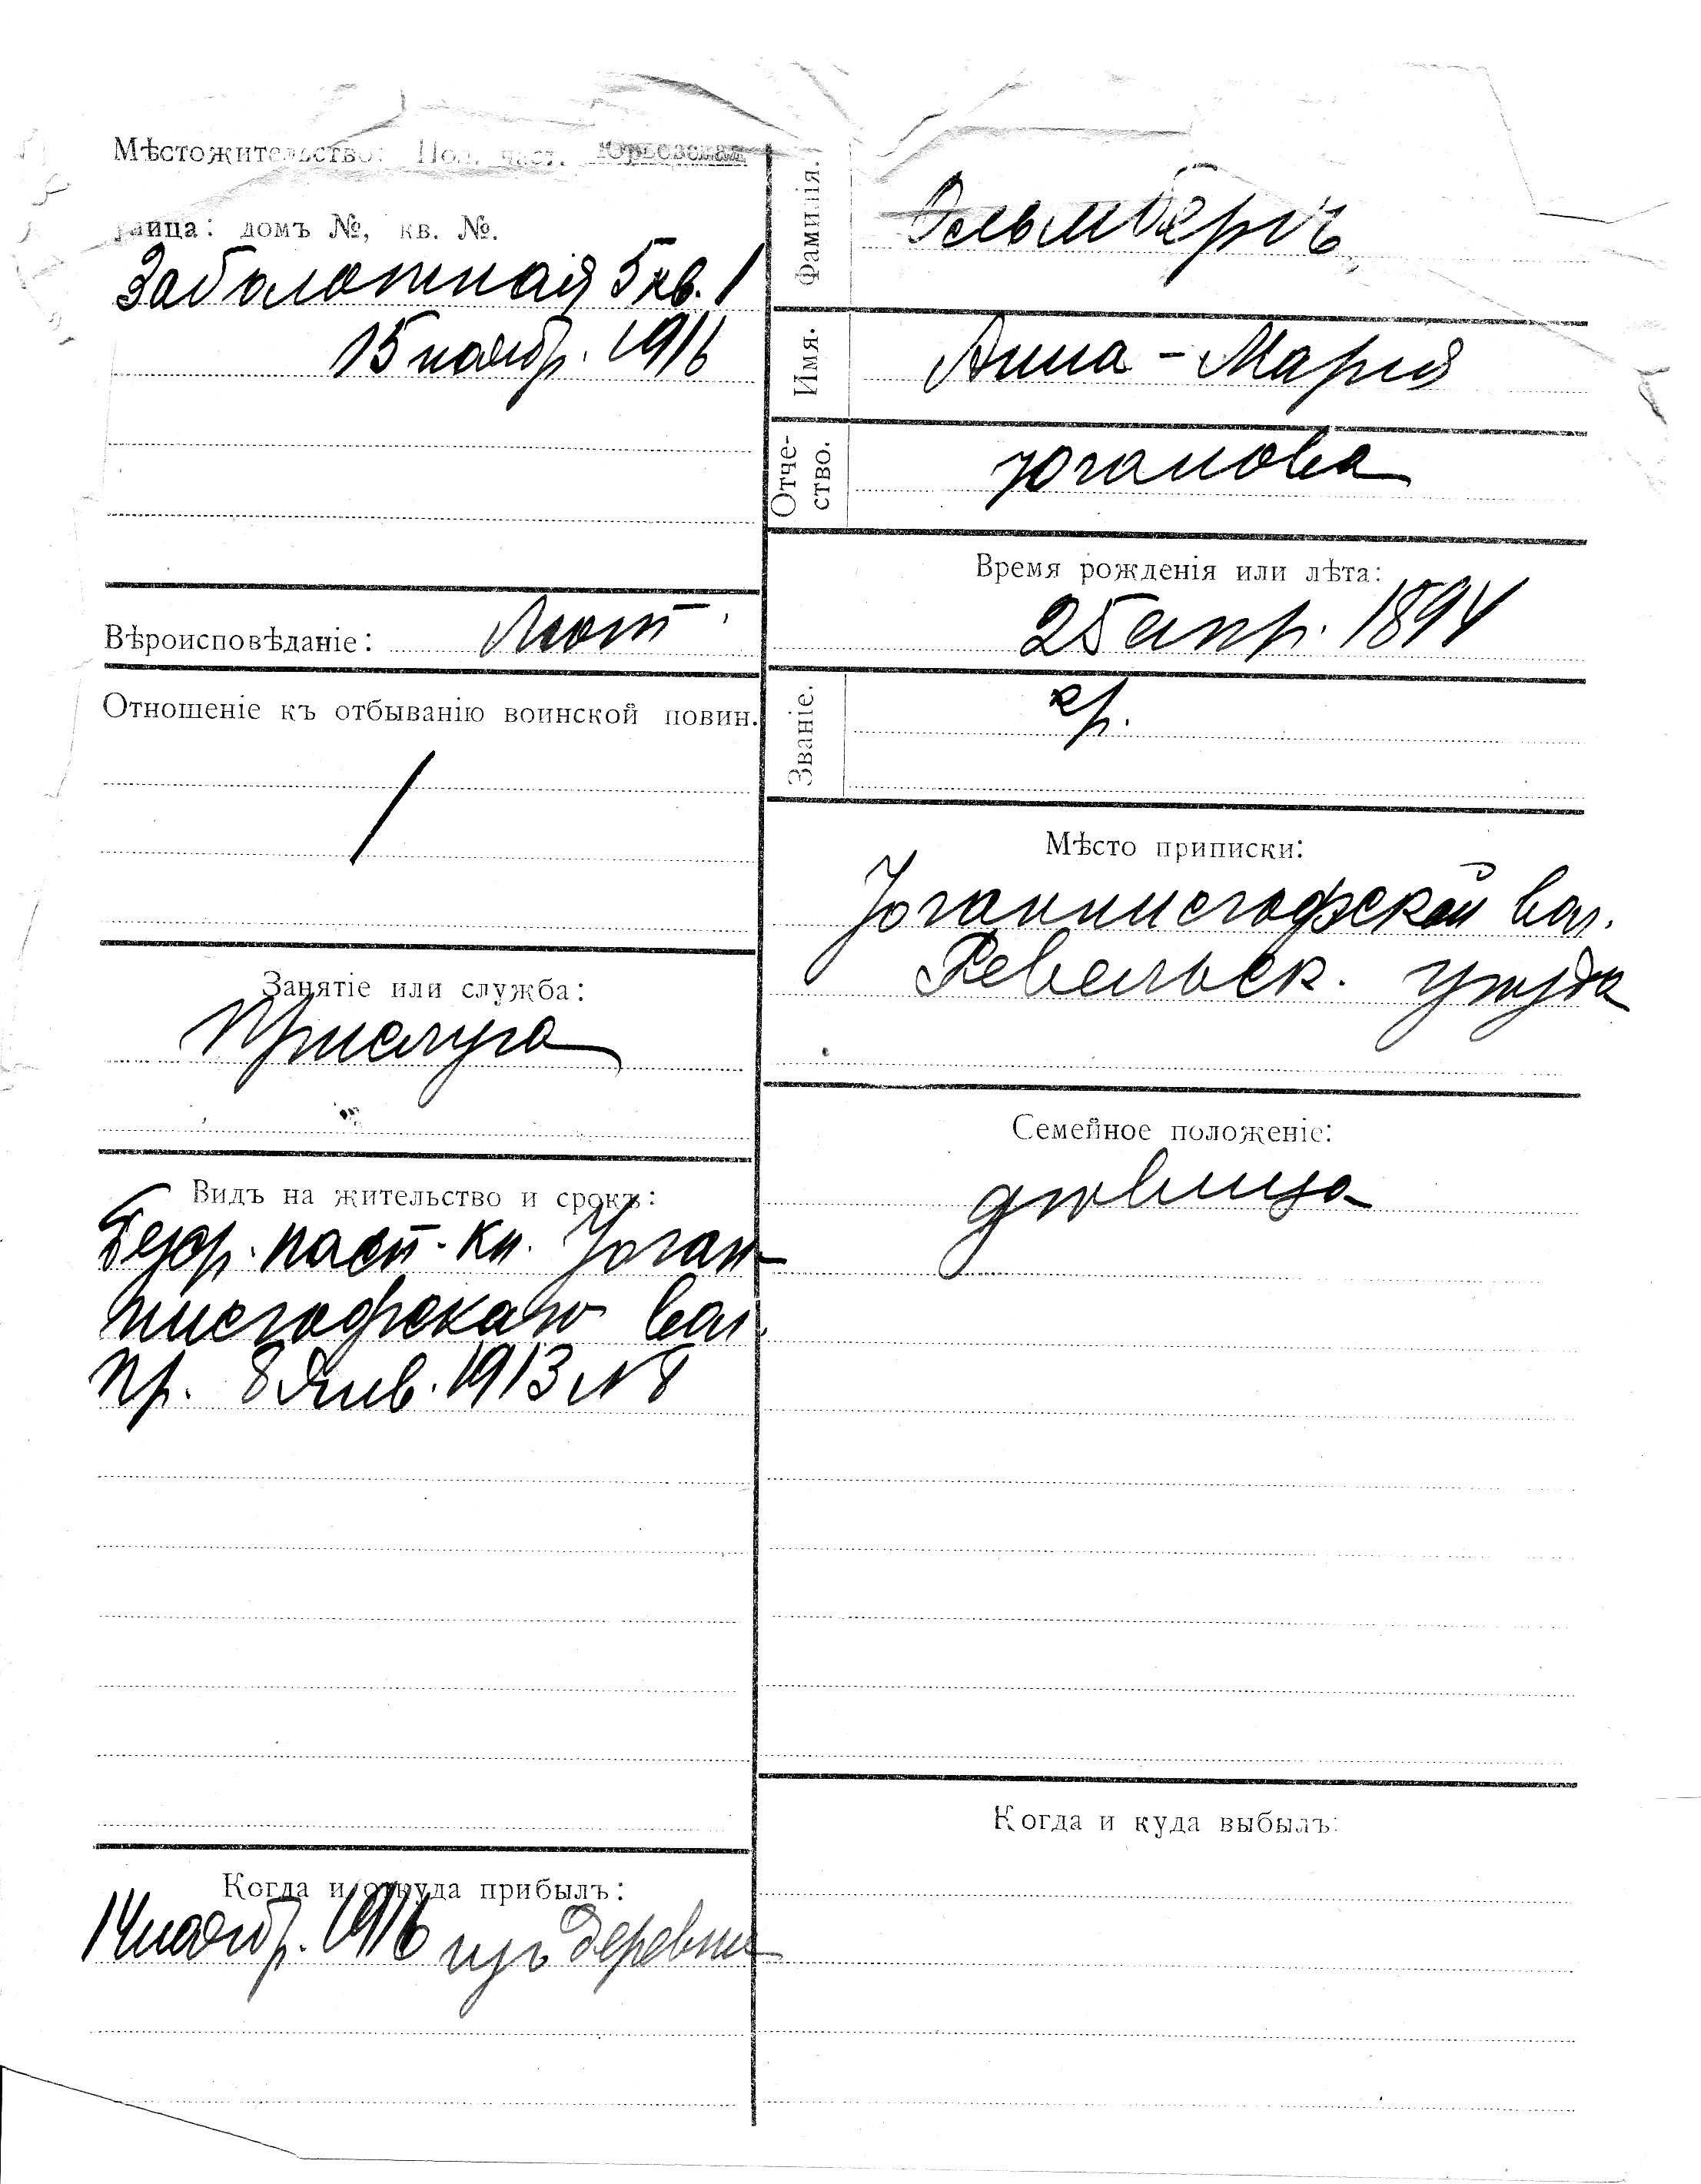 Мѣстожительство: Пол. част. Юрьевская
улица: домъ №, кв. №.
Заболотная 5 кв. 1
15 ноябр. 1916
Вѣроисповѣданіе: Лют.
Отношеніе къ отбыванію воинской повин.
Занятіе или служба:
Прислуга
Видъ на жительство и срокъ:
Безср. пасп. кн. Юган-
нисгофскаго вол.
пр. 8 Янв. 1913 № 8
Когда и откуда прибылъ:
14 ноябр. 1916 изъ деревни
Фамилія.
Имя. Анна - Марія
Отче-
ство. Юганова
Время рожденія или лѣта:
25 апр. 1894
Званіе. кр.
Мѣсто приписки:
Юганнисгофской вол.
Ревельск. уѣзда
Семейное положеніе:
дѣвица
Когда и куда выбылъ: